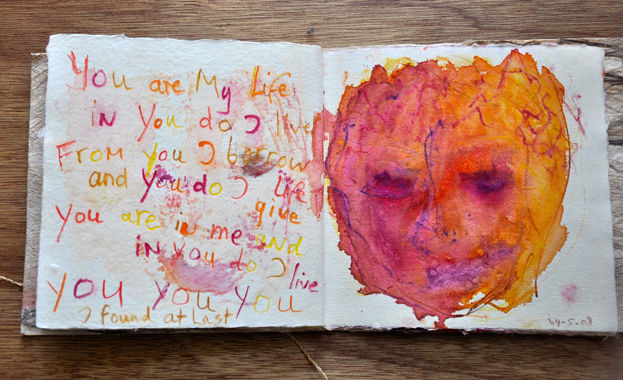 You are My Life
in You do I live
From you I borrow
and you do I life
give
You are in me and
in you do I live
you you you
I found at Last
24-5-08